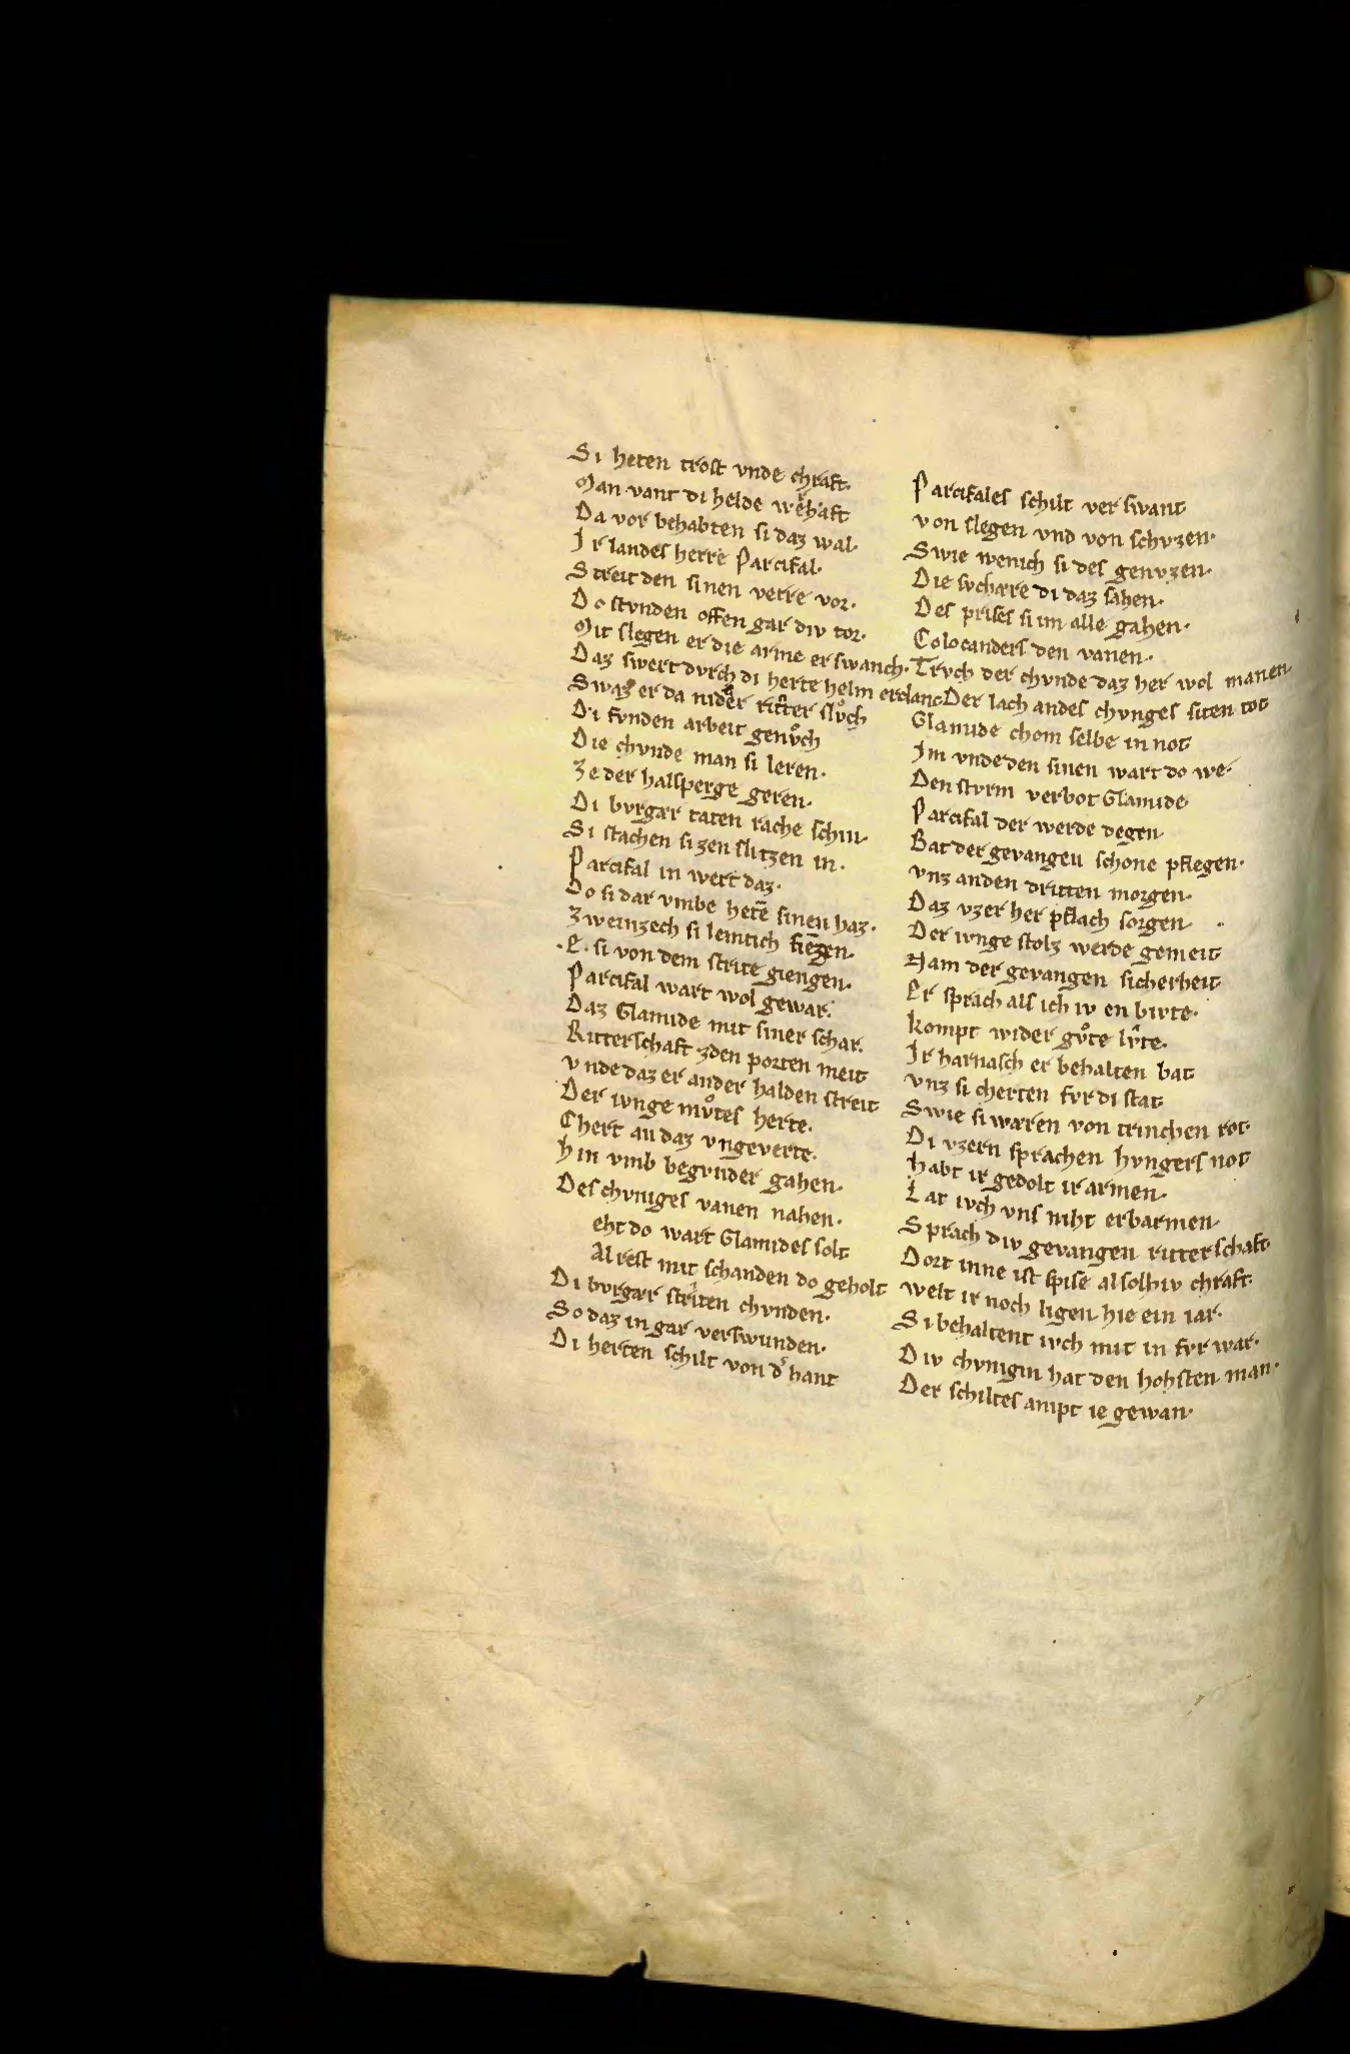 Si heten trost vnde chraft·
Man vant di helde werhaft
Da vor behabten si daz wal·
Ir landes herre Parcifal·
Streit den sinen verre vor·
Do stvnden offen gar div tor·
Mit slegen er die arme erswanch·
Daz swert dvrch di herte helm erclanc
Swaz er da nider ritter slvͦch
Di fvnden arbeit genvͦch
Die chvnde man si leren·
Ze der halsperge geren·
Di bvrgær taten rache schin·
Si stachen si zen slitzen in·
Parcifal in wert daz·
Do si dar vmbe hete sinen haz·
Zweinzech si lemtich fiezen·
·E· si von dem strite giengen·
Parcifal wart wol gewar·
Daz Glamide mit siner schar·
Ritterschaft zden porten meit
Vnde daz er ander halden streit
Der ivnge mvͦtes herte·
Chert an daz vngeverte·
Hin vmb begvnder gahen·
Des chvniges vanen nahen·
eht do wart Glamides solt
Al rest mit schanden do geholt
Di bvrgær striten chvnden·
So daz in gar verswunden·
Di herten schilt von dʼ hant
Parcifales schilt verswant
von slegen vnd von schvzen·
Swie wenich si des genvzen·
Die svchære di daz sahen·
Des prises si im alle gahen·
Colocanders den vanen·
Trvch der chvnde daz her wol manen·
Der lach andes chvnges siten tot
Glamide chom selbe in not
Im vnde den sinen wart do we·
Den stvrm verbot Glamide
Parcifal der werde degen
Bat der gevangen schone pflegen·
vnz anden dritten morgen·
Daz vzer her pflach sorgen
Der ivnge stolz werde gemeit
Nam der gevangen sicherheit
Er sprach als ich iv en bivte·
kompt wider gvͦte lv̂te·
Ir harnasch er behalten bat
vnz si cherten fvr di stat
Swie si wæren von trinchen rot·
Di vzern sprachen hvngers not
habt ir gedolt ir armen·
Lat ivch vns niht erbarmen
Sprach div gevangen ritterschaft·
Dort inne ist spise al solhiv chraft·
welt ir noch ligen hie ein iar·
Si behaltent ivch mit in fvr war·
Div chvnigin hat den hohsten man·
Der schiltes ampt ie gewan·